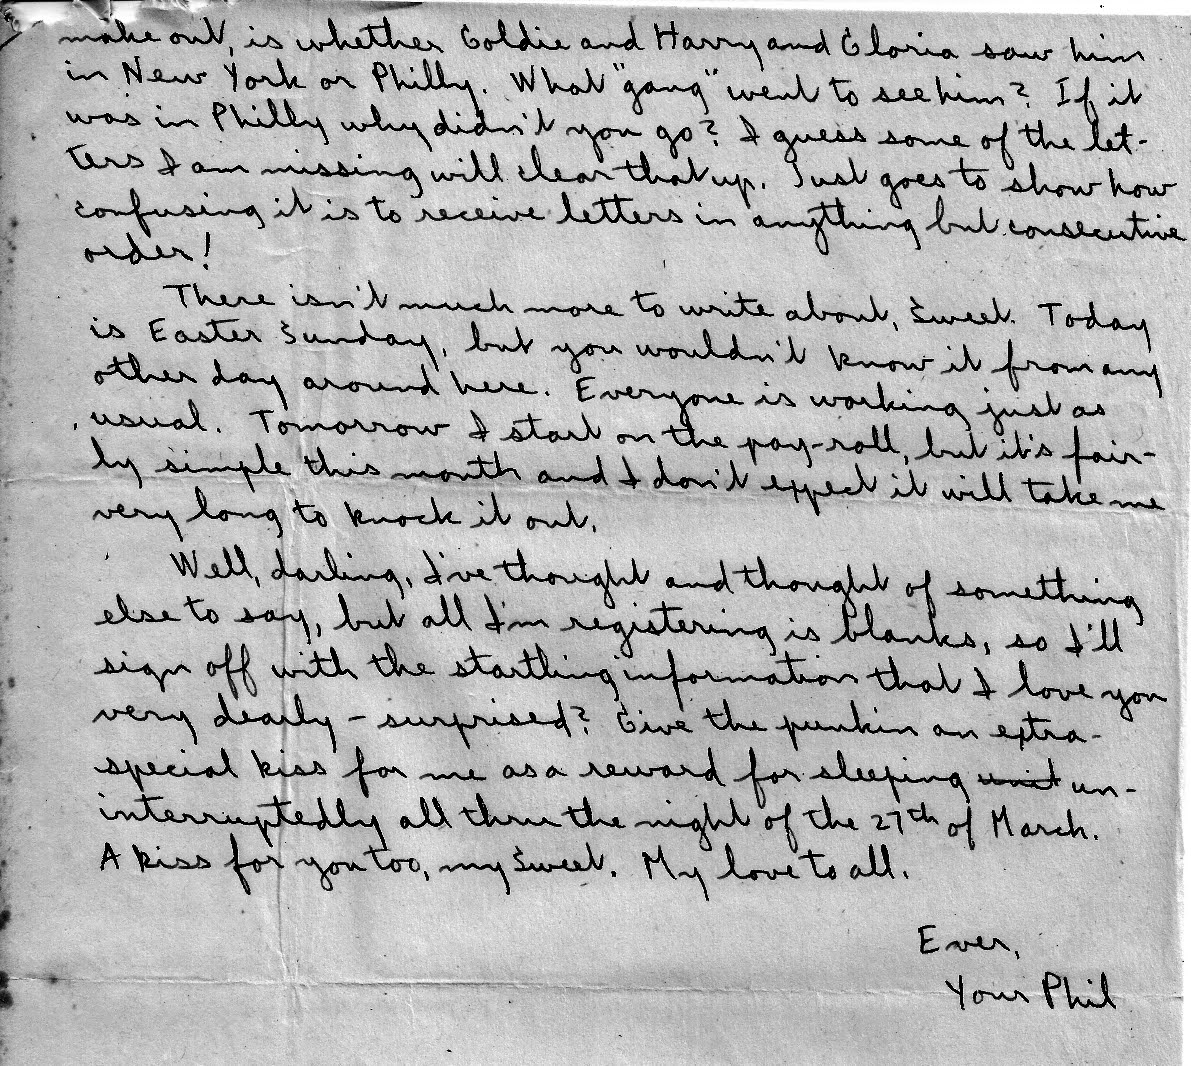 make out, is whether Goldie and Harry and Gloria saw him
in New York or Philly. What "gang" went to see him? If it
was in Philly why didn't you go? I guess some of the let-
ters I am missing will clear that up. Just goes to show how
confusing it is to receive letters in anything but consecutive
order!
There isn't much more to write about, Sweet. Today
is Easter Sunday, but you wouldn't know it from any
other day around here. Everyone is working just as
usual. Tomorrow I start on the pay-roll, but it's fair-
ly simple this month and I don't expect it will take me
very long to knock it out.
Well, darling, I've thought and thought of something
else to say, but all I'm registering is blanks, so I'll
sign off with the startling information that I love you
very dearly - surprised? Give the punkin an extra-
special kiss for me as a reward for sleeping unint un-
interruptedly all thru the night of the 27th of March.
A kiss for you too, my Sweet. My love to all.
Ever,
Your Phil